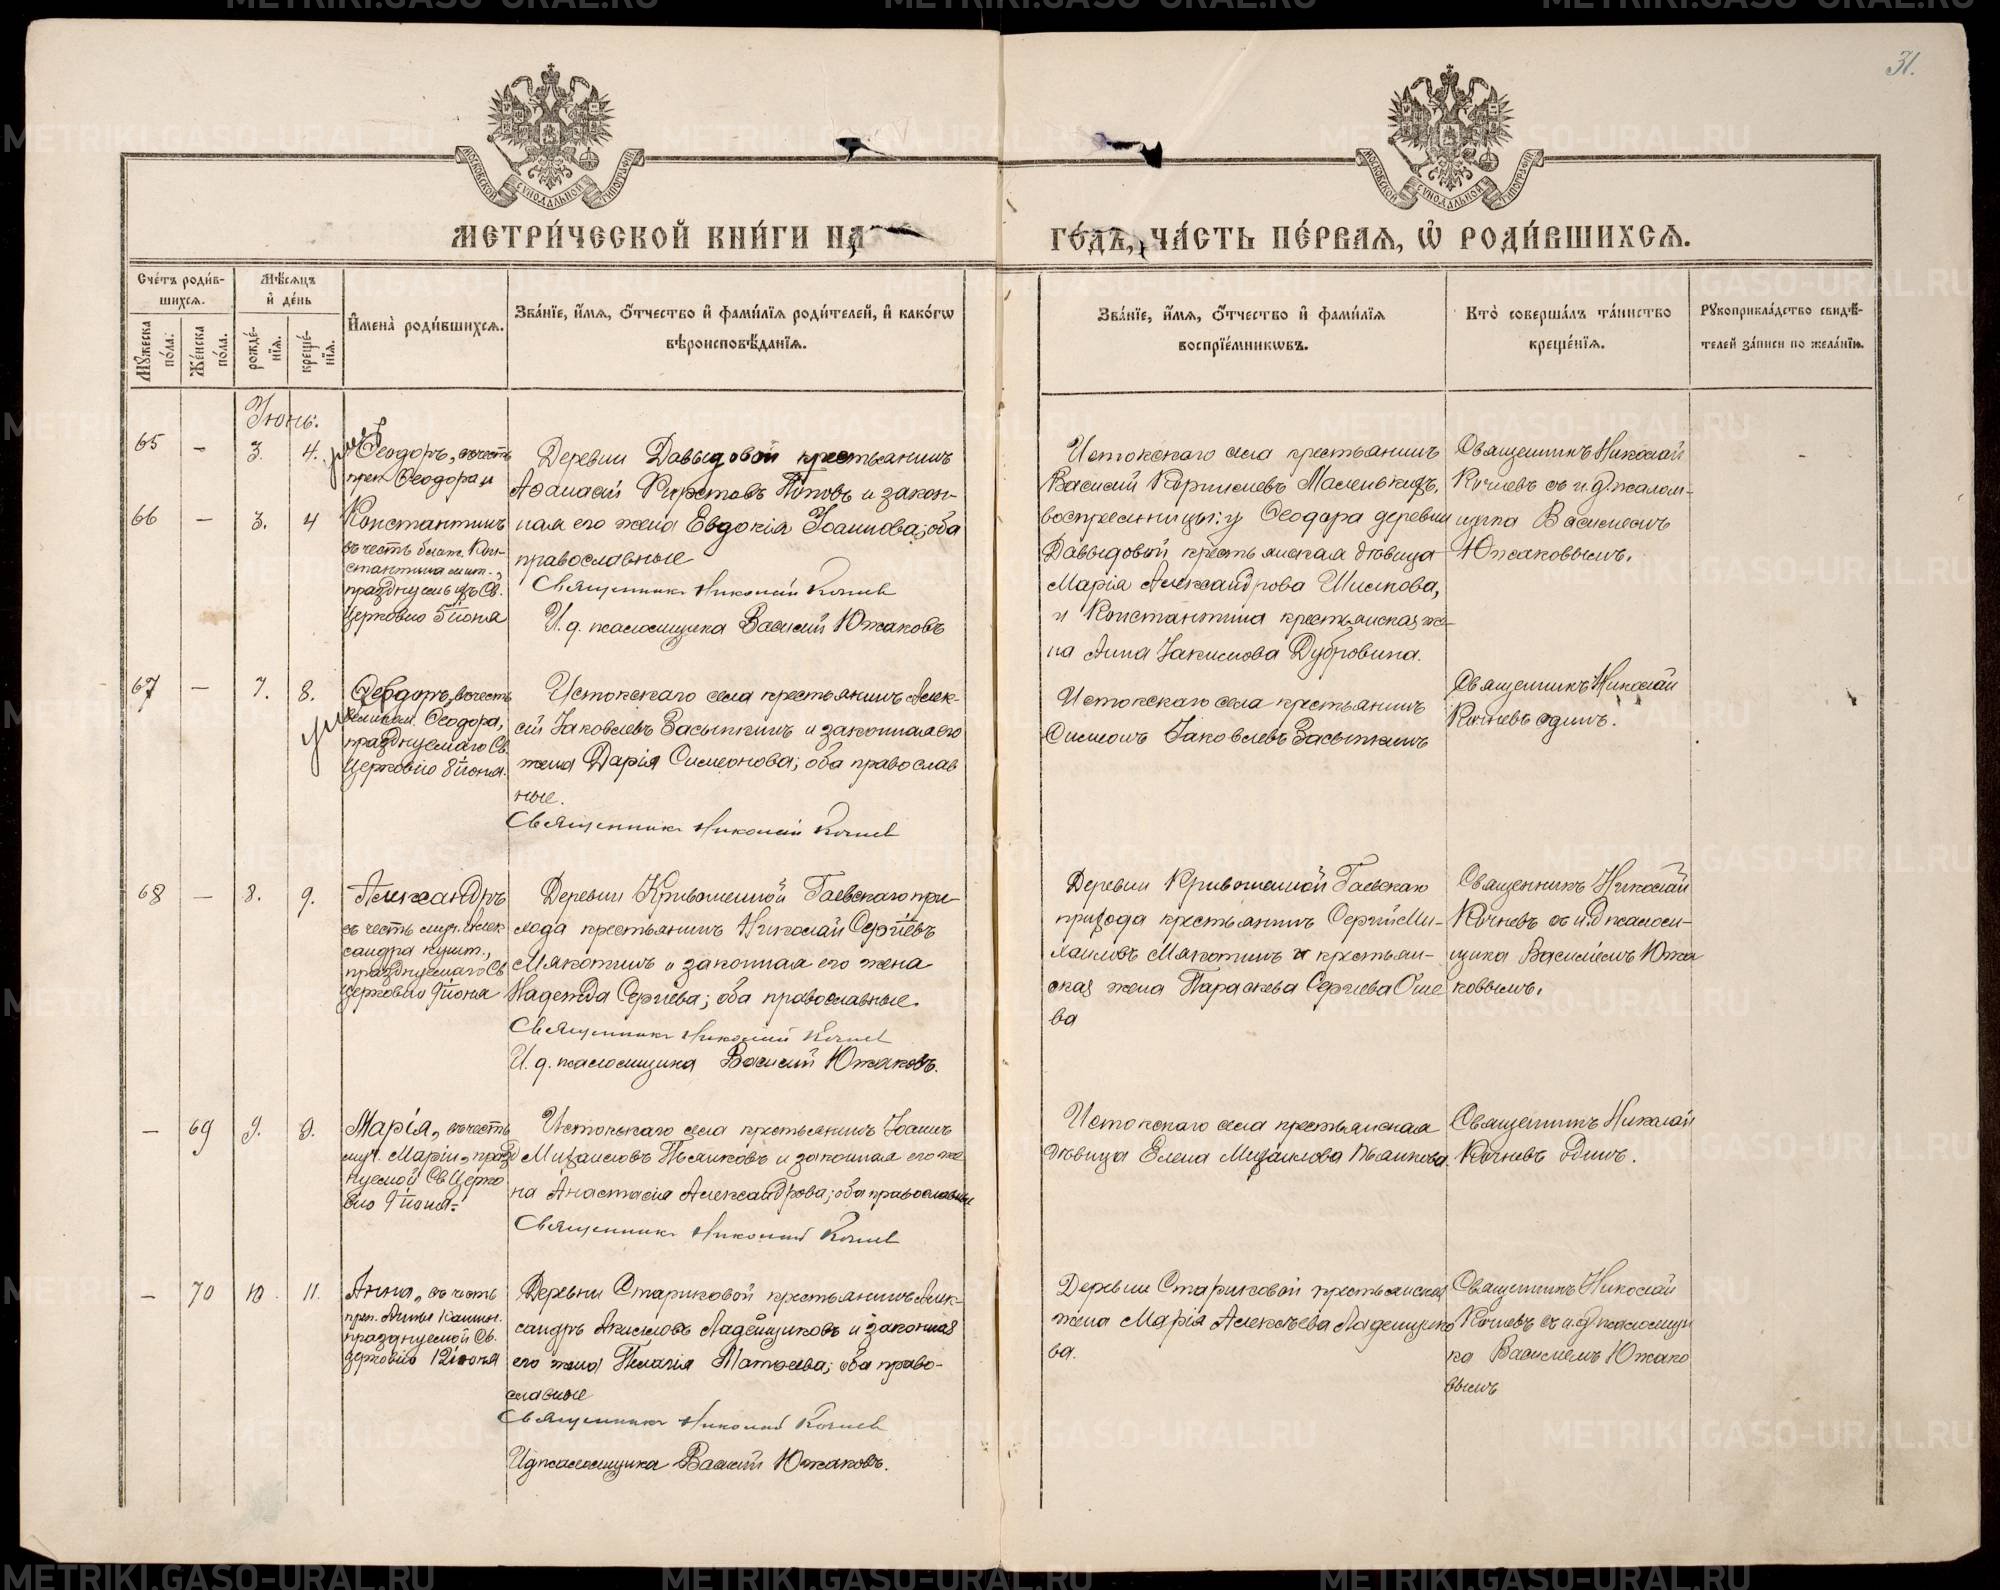 31.
МОСКОВСКОЙ СѴНОДАЛЬНОЙ ТИПОГРАФІИ
МОСКОВСКОЙ СѴНОДАЛЬНОЙ ТИПОГРАФІИ
МЕТРИ́ЧЕСКОЙ КНИ́ГИ НА
ГО́ДЪ, ЧА́СТЬ ПЕ́РВАЯ, Ѡ РОДИ́ВШИХСЯ.
Сче́тъ роди́в-
шихся.
Мꙋ́жеска по́ла.
Же́нска по́ла.
Мѣ́сяцъ
и҆ де́нь
рожде́-
нїя.
креще́-
нїя.
И҆мена̀ роди́вшихся.
Зва́нїе, и҆́мя, ѻ҆́тчество и҆ фами́лїя роди́телей, и҆ како́гѡ
вѣроисповѣ́данїя.
Зва́нїе, и҆́мя, ѻ҆́тчество и҆ фами́лїя
воспрїе́мникѡвъ.
Кто̀ соверша́лъ та́инство
креще́нїя.
Рꙋкоприкла́дство свидѣ́-
телей за́писи по жела́нїю.
Іюнь.
65 – 3. 4.
Ѳеодоръ, въ честь
преп. Ѳеодора, и
66 – 3. 4
Константинъ
въ честь блаж. Кон-
стантина мит.,
Церковію 5 іюня
Деревни Давыдовой крестьянинъ
Аѳанасій Поповъ и закон-
ная его жена Евдокія Іоаннова; оба
православные
Священникъ Николай Кочнев
И. д. псаломщика Василій Южаковъ
Истокскаго села крестьянинъ
Василій Корнилievъ Маленькихъ,
воспреемницы: у Ѳеодора деревни
Давыдовой крестьянская дѣвица
Марія Александрова Шилкова,
и Константина крестьянская же-
на Анна Іакимова Дубровина.
Священникъ Николай
Кочневъ съ и.д. псалом-
щика Василіемъ
Южаковымъ.
67 – 7. 8.
Ѳеодоръ, въ честь
великом. Ѳеодора,
празднуемаго Св.
Церковію 8 іюня.
Истокскаго села крестьянинъ Алек-
сій Іаковлевъ Засыпкинъ и законная его
жена Дарія Симеонова; оба православ
ные.
Священникъ Николай Кочнев
Истокскаго села крестьянинъ
Симеонъ Іаковлевъ Засыпкинъ
Священникъ Николай
Кочневъ одинъ.
68 – 8. 9.
Александръ
въ честь муч. Алек
сандра
празднуемаго Св
Церковію 9 іюня
Деревни Кривошеиной Гаевскаго при
хода крестьянинъ Николай Сергіевъ
Мякотинъ и законная его жена
Надежда Сергіева; оба православные.
Священникъ Николай Кочнев
И. д. псаломщика Василій Южаковъ.
Деревни Кривошеиной Гаевскаго
прихода крестьянинъ Сергій Ми-
хаиловъ Мякотинъ и крестьян-
ская жена Параскева Сергіева
ва
Священникъ Николай
Кочневъ съ и.д псалом-
щика Василіемъ Южа
ковымъ.
– 69 9. 9.
Марія, въ честь
муч. Маріи, празд
нуемой Св Церко
вію 9 іюня.
Истокскаго села крестьянинъ Іоаннъ
Михаиловъ Пьянковъ и законная его же
на Анастасія Александрова; оба православные
Священникъ Николай Кочнев
Истокскаго села крестьянская
дѣвица Елена Михаилова Пьянкова.
Священникъ Николай
Кочневъ одинъ.
– 70 10. 11.
Анна, въ честь
преп. Анны
празднуемой Св.
Церковію 12 іюня
Деревни Стариковой крестьянинъ Алек-
сандръ Акиловъ Ладейщиковъ и законная
его жена Пелагія Матѳеева; оба право-
славные
Священникъ Николай Кочнев
И д псаломщика Василій Южаковъ.
Деревни Стариковой крестьянская
жена Марія Алексѣева Ладейщико
ва.
Священникъ Николай
Кочневъ съ и. д псаломщи
ка Василіемъ Южако
вымъ
METRIKI.GASO-URAL.RU